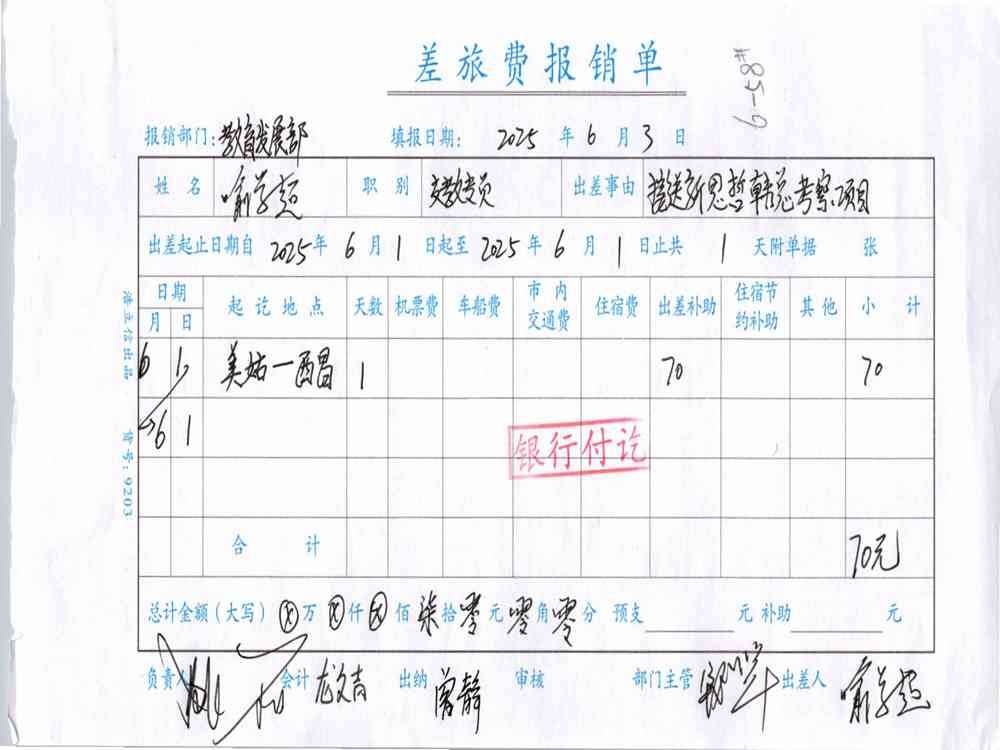 差旅费报销单
#85-9
报销部门:教育发展部 填报日期: 2025 年 6 月 3 日
姓名 喻学超 职别 出差事由 接送新思哲韩总考察项目
出差起止日期自 2025 年 6 月 1 日起至 2025 年 6 月 1 日止共 1 天附单据 张
日期 起讫地点 天数 机票费 车船费 市内交通费 住宿费 出差补助 住宿节约补助 其他 小计
月 日
6 1 美姑—西昌 1 70 70
→6 1
银行付讫
合计 70元
总计金额(大写) ⊗万 ⊗仟 ⊗佰 柒拾 零元 零角 零分 预支 元 补助 元
负责人 会计 龙文吉 出纳 曾静 审核 部门主管 出差人 喻学超
港立信出品 货号:9203